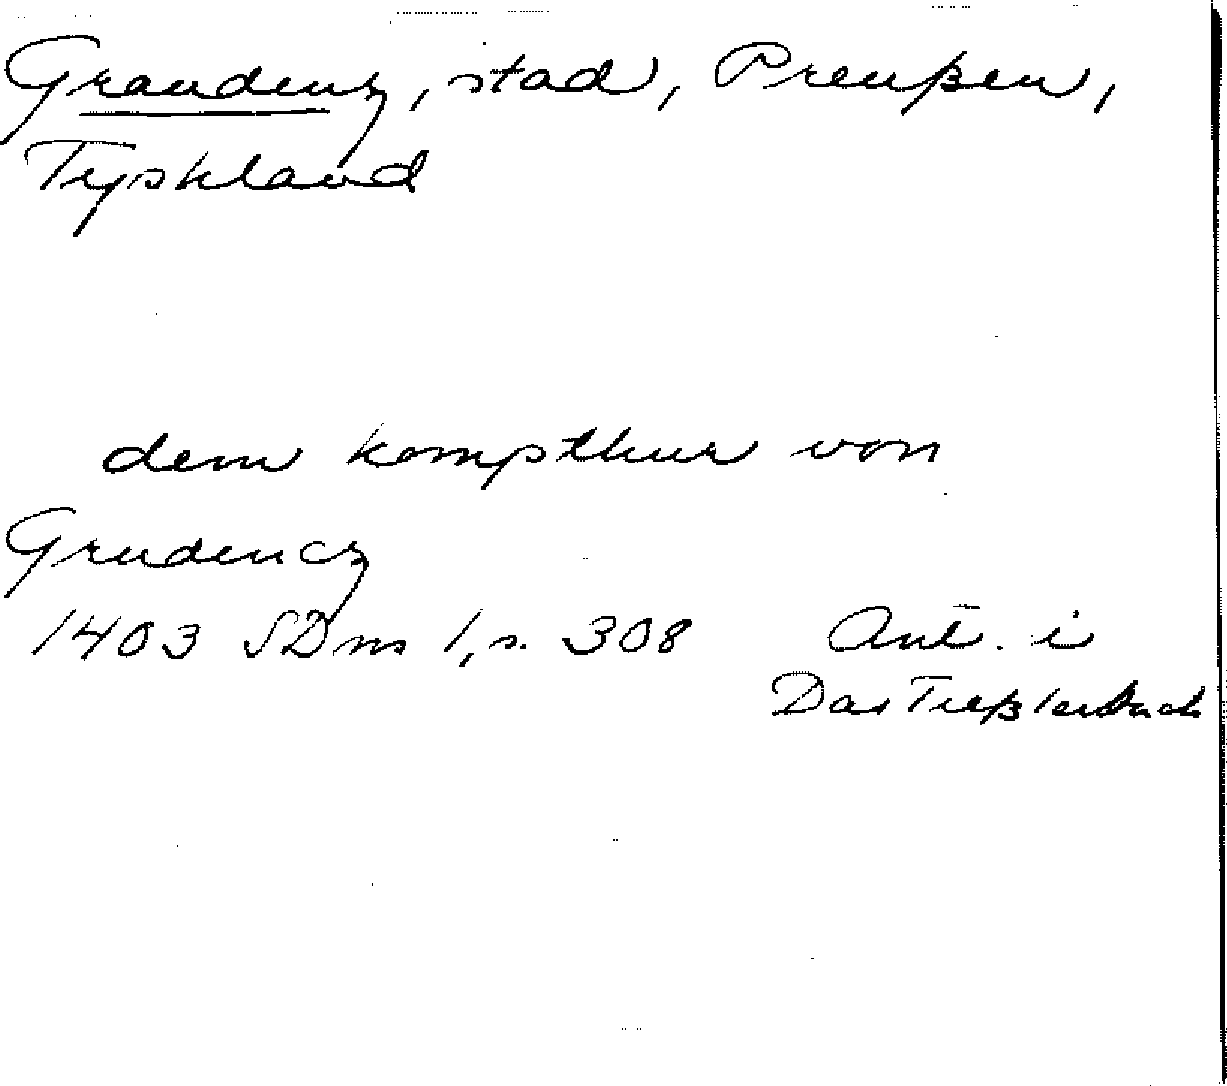 Graudenz, stad, Preußen,
Tyskland
dem kompthur von
Grudencz
1403 SDns 1, s. 308
Ant. i
Das Treßlerbuch